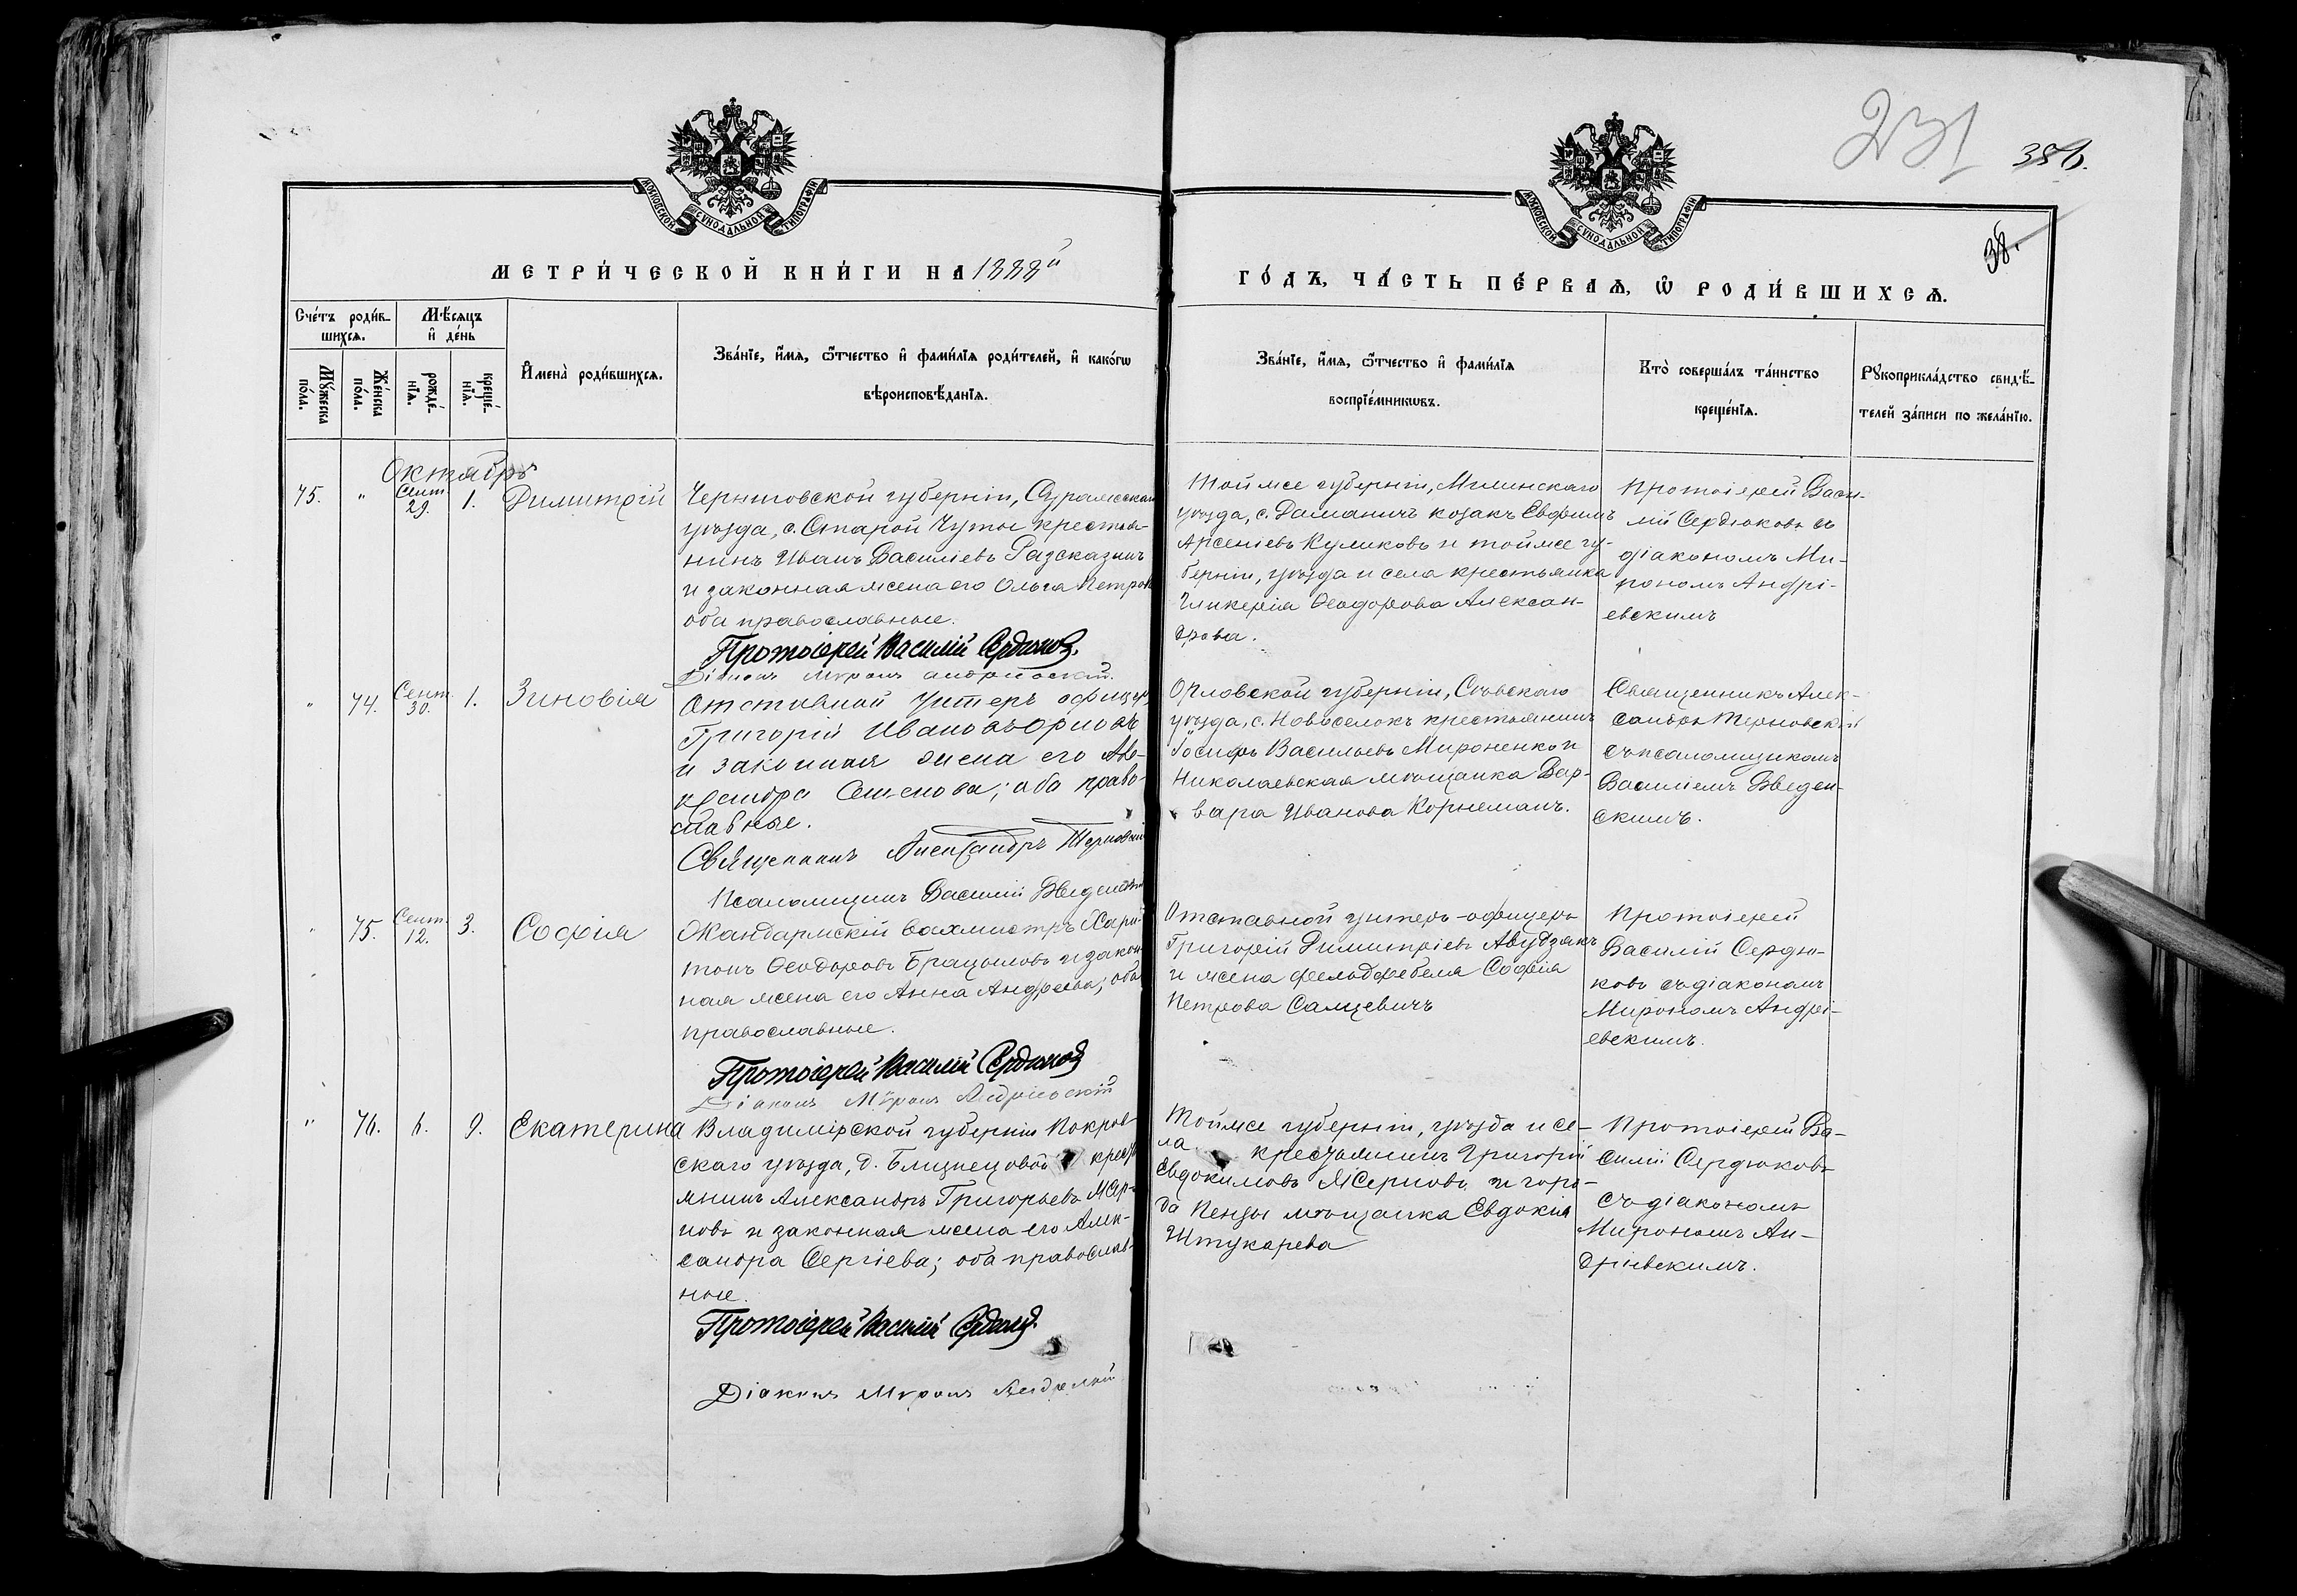 231
386.
38.
МОСКОВСКОЙ СѴНОДАЛЬНОЙ ТИПОГРАФІИ
МОСКОВСКОЙ СѴНОДАЛЬНОЙ ТИПОГРАФІИ
МЕТРИ́ЧЕСКОЙ КНИ́ГИ НА 1888й
ГО́ДЪ, ЧА́СТЬ ПЕ́РВАѦ, Ѡ РОДИ́ВШИХСѦ.
Сче́тъ роди́в-
шихсѧ.
Мѣ́сѧцъ
и҆ де́нь
Мꙋ́жеска по́ла.
Же́нска по́ла.
рожде́-
нїѧ.
креще́-
нїѧ.
И҆мена̀ роди́вшихсѧ.
Зва́нїе, и҆́мѧ, ѻ҆́тчество и҆ фами́лїѧ роди́телей, и҆ како́гѡ
вѣроисповѣ́данїѧ.
Зва́нїе, и҆́мѧ, ѻ҆́тчество и҆ фами́лїѧ
воспрїе́мникѡвъ.
Кто̀ соверша́лъ та́инство
креще́нїѧ.
Рꙋкоприкла́дство свидѣ́-
телей за́писи по жела́нїю.
Октябрь
75. " Сент. 29. 1. Димитрій
Черниговской губерніи, Суражскаго
уѣзда, с. Старой Гуты крестья-
нинъ Иванъ Василіевъ Разсказинъ
и законная жена его Ольга Петрова
оба православные.
Протоіерей Василій Сердюковъ.
Діаконъ Миронъ Андріевскій.
Той же губерніи, Мглинскаго
уѣзда, с. Даманичъ козакъ Евфимъ
Арсеніевъ Куликовъ и той же гу-
берніи, уѣзда и села крестьянка
Гликерія Ѳеодорова Алексан-
дрова.
Протоіерей Васи-
лій Сердюковъ съ
діакономъ Ми-
рономъ Андрі-
евскимъ
" 74. Сент. 30. 1. Зиновія
Отставной унтеръ офицеръ
Григорій Ивановъ Орловъ
и законная жена его Але-
ксандра Семенова; оба право-
славные.
Священникъ Александръ Терновскій
Псаломщикъ Василій Введенскій
Орловской губерніи, Сѣвскаго
уѣзда, с. Новоселокъ крестьянинъ
Іосифъ Васильевъ Мироненко и
Николаевская мѣщанка Вар-
вара Иванова Корнеманъ.
Священникъ Алек-
сандръ Терновскій
съ псаломщикомъ
Василіемъ Введен-
скимъ.
" 75. Сент. 12. 3. Софія
Жандармскій вахмистръ Хари-
тонъ Ѳеодоровъ Брацыловъ и закон-
ная жена его Анна Андреева; оба
православные.
Протоіерей Василій Сердюковъ
Діаконъ Миронъ Андріевскій
Отставной унтеръ-офицеръ
Григорій Димитріевъ Авудзакъ
и жена фельдфебеля Софія
Петрова Салцевичъ
Протоіерей
Василій Сердю-
ковъ съ діакономъ
Мирономъ Андрі-
евскимъ.
" 76. 6. 9. Екатерина
Владимірской губерніи Покров-
скаго уѣзда, д. Близнецовой кресть
янинъ Александръ Григорьевъ Жер-
новъ и законная жена его Алек-
сандра Сергіева; оба православ-
ные.
Протоіерей Василій Сердюковъ.
Діаконъ Миронъ Андріевскій
Той же губерніи, уѣзда и се-
ла крестьянинъ Григорій
Евдокимовъ Жерновъ и горо-
да Пензы мѣщанка Евдокія
Штукарева
Протоіерей Ва-
силій Сердюковъ
съ діакономъ
Мирономъ Ан-
дріевскимъ.